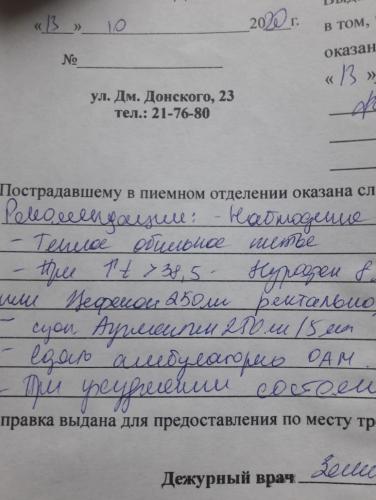 «13» 10 2020г.
в том,
№
оказан
ул. Дм. Донского, 23
«13»
тел.: 21-76-80
Пострадавшему в пиемном отделении оказана сл
Рекомендации: - Наблюдение
- Теплое обильное питье
- При ↑t >38,5 - Нурофен 8
или Цефекон 250мг ректально
- сусп. Аугментин 250мг/5мл
- Сдать амбулаторно ОАМ.
- При ухудшении состоян
правка выдана для предоставления по месту тр
Дежурный врач